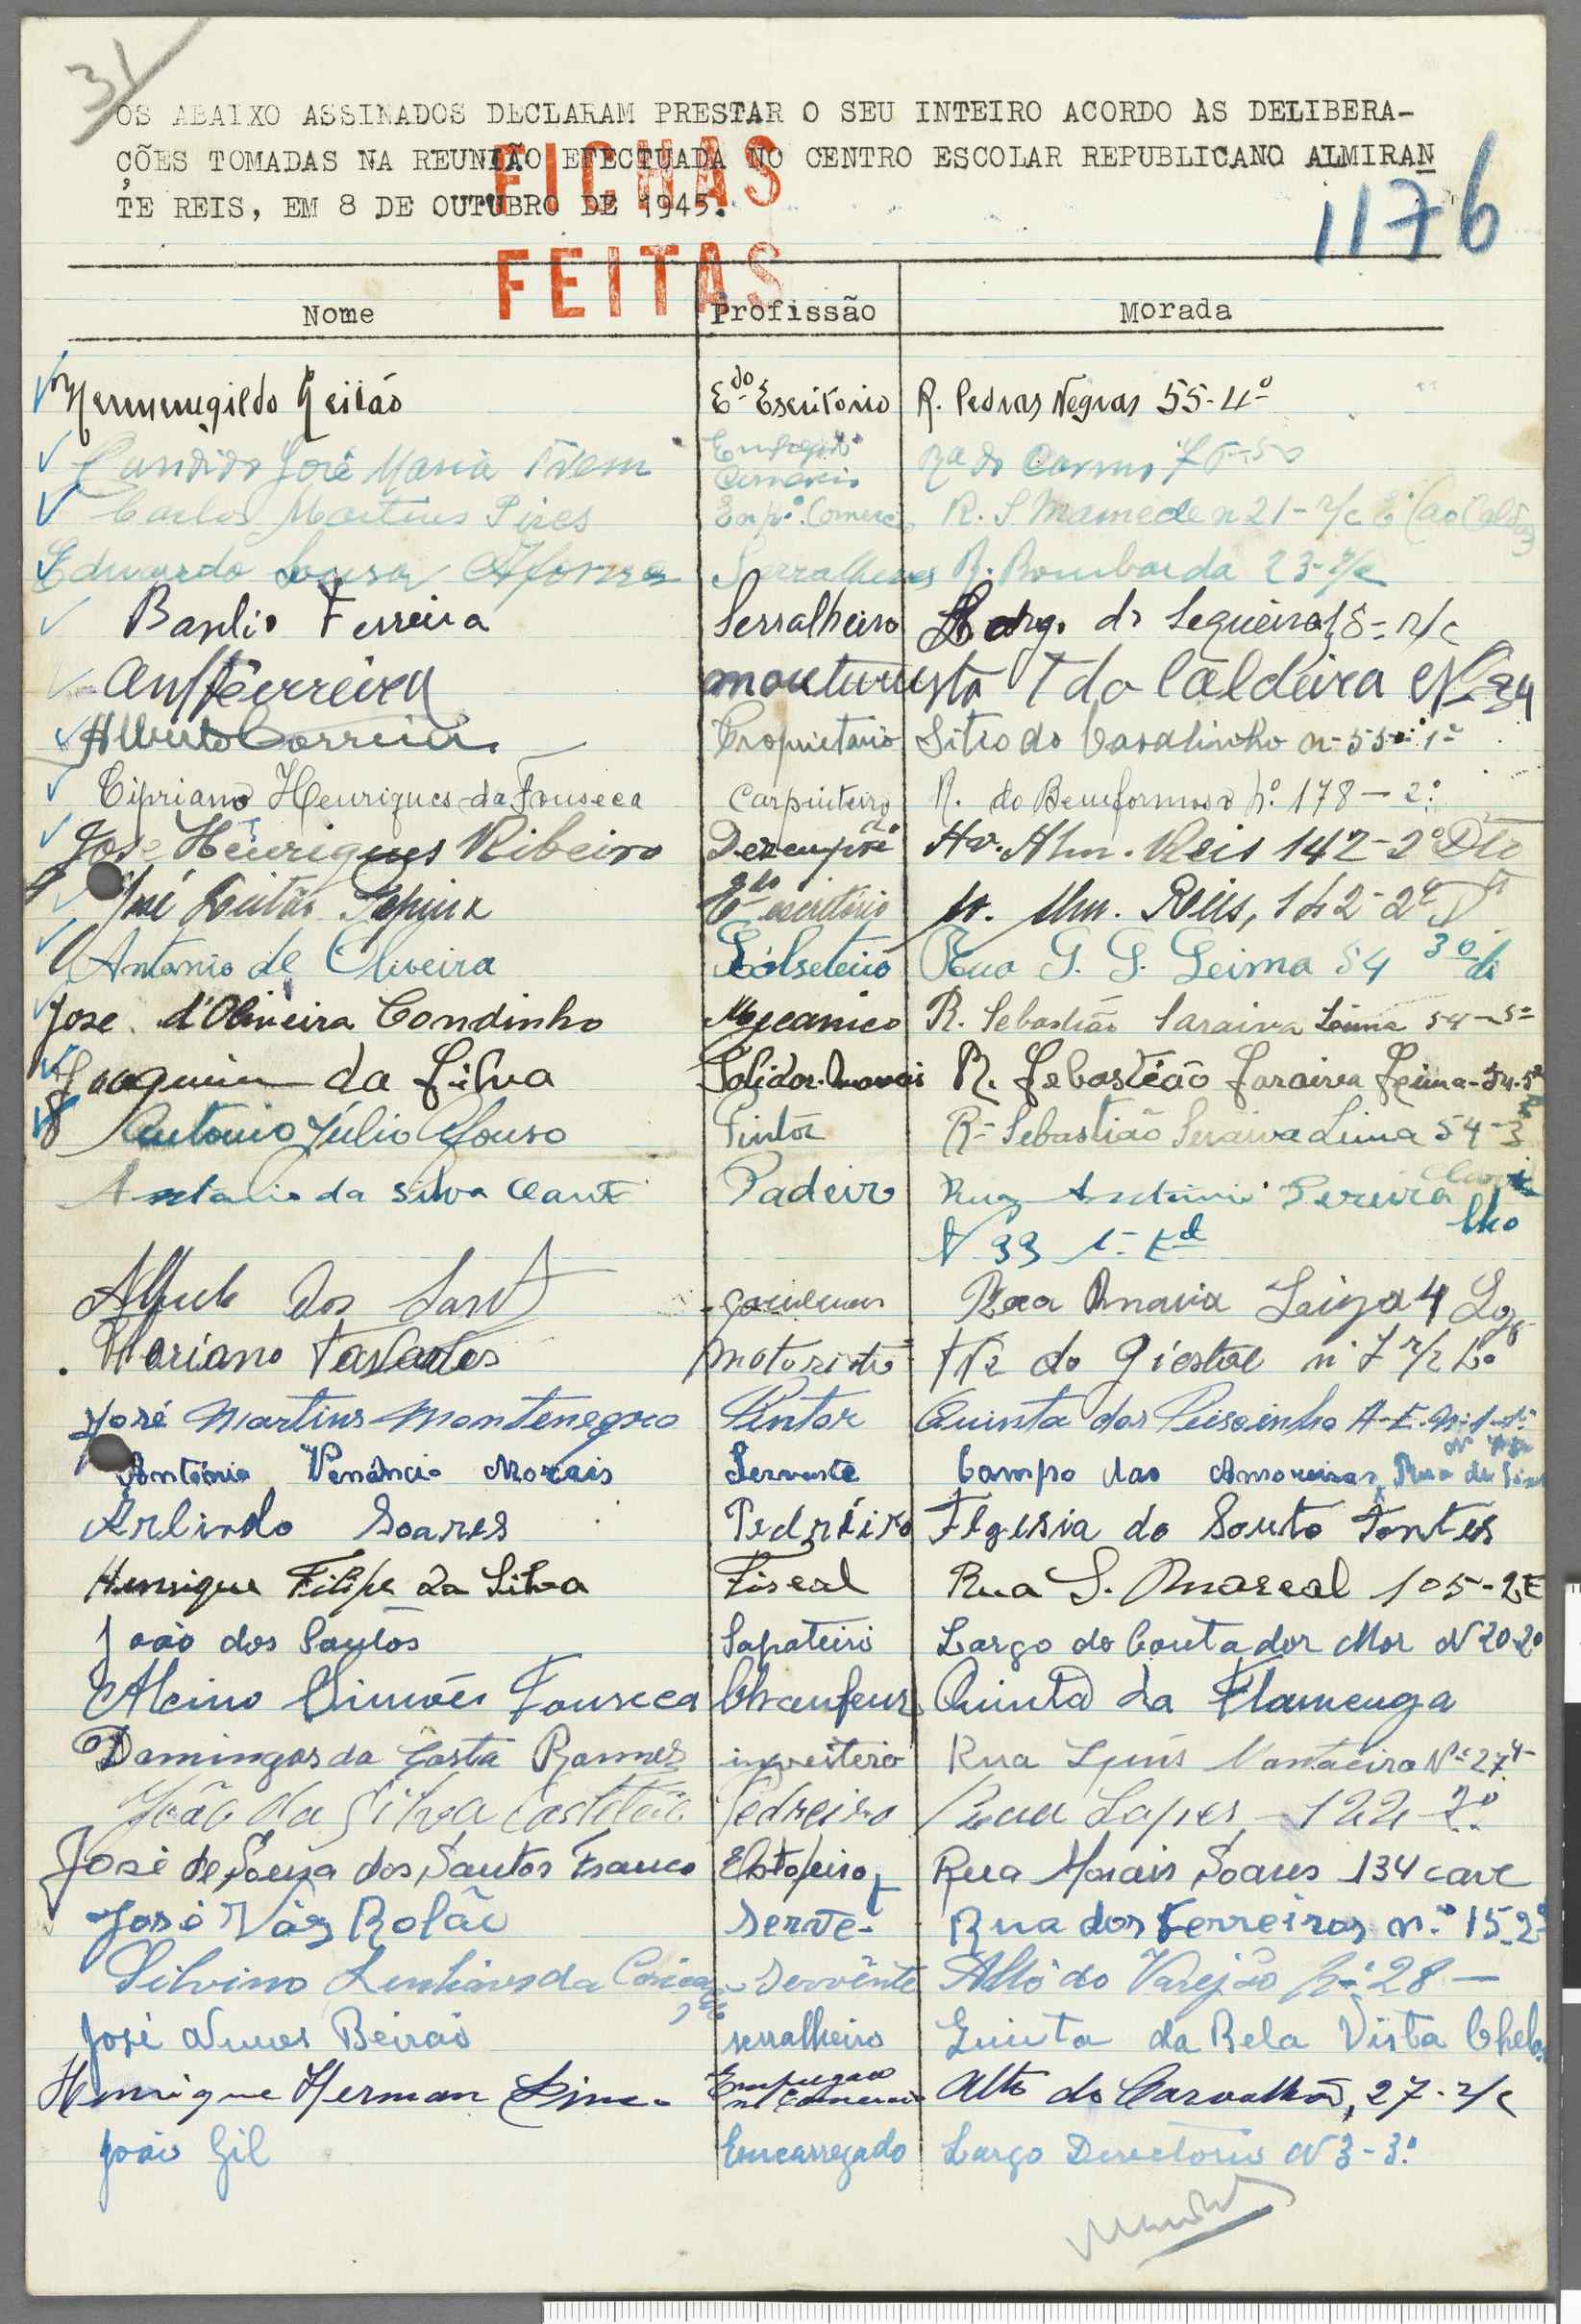 31
OS ABAIXO ASSINADOS DECLARAM PRESTAR O SEU INTEIRO ACORDO ÀS DELIBERA-
ÇÕES TOMADAS NA REUNIÃO EFECTUADA NO CENTRO ESCOLAR REPUBLICANO ALMIRAN
TE REIS, EM 8 DE OUTUBRO DE 1945.
FICHAS
FEITAS
1176
Nome Profissão Morada
Hermenegildo Leitão Edo Escritório R. Pedras Negras 55-4º
Candido José Maria do Carmo
Carlos Martins Pires Empº. Comerc R. S. Mamede n 21-r/c Eº (ao Caldas)
Eduardo Sousa Afonso Serralheiro R. Bombarda 23-r/c
Basilio Ferreira Serralheiro Larg. do Sequeira, 8-r/c
Ferreira T do Caldeira Nº 34
Alberto Correia Proprietario Sitio do Casalinho n-55-1º
Cipriano Henriques da Fonseca Carpinteiro R. do Bemformoso nº. 178-2º.
José Henriques Ribeiro Av. Alm. Reis 142-2º Dto
José Leitão Edo escritório Av. Alm. Reis, 142-2º Dº
Antonio de Oliveira Rua S. S. Leima 54 3º
Jose d'Oliveira Condinho Mecanico R. Sebastião Saraiva Leima 54-5º
Joaquim da Silva R. Sebastião Saraiva Leima-54-5º
Antonio Júlio Afonso Pintor R- Sebastião Seraiva Lima 54-3
Antonio da Silva Padeiro Rua Antonio Pereira Carri
lho
N 33 1-
dos Rua Maria 4
Mariano motorista do Giestal nº 7 r/c
José Martins Montenegro Pintor Quinta dos Peixinhos
António Venâncio Morais Servente Campo das Amoreiras, Rua de
Arlindo Soares Pedreiro do Souto Fontes
Henrique Filipe da Silva Fiscal Rua S. Marcal 105-2E
João dos Santos Sapateiro Largo do Contador Mor N 20-2º
Alcino Simões Fonseca Chaufeur Quinta da Flamenga
Domingos da Costa Ramos Rua Luís Monteiro Nº 27
João da Silva Pedreiro Rua Lopes, 122 2º.
José de Souza dos Santos Franco Estofeiro Rua Morais Soares 134 cave
José Váz Rolão Serve- Rua dos Ferreiros n.º 15-2º
Silvino da Servente Alto do Varejão nº 28-
José Nunes Beirão serralheiro Quinta da Bela Vista Chelas
Henrique Herman Empregado
no Comercio Alto do Carvalhão, 27-r/c
João Gil Encarregado Largo Directorio N 3-3º